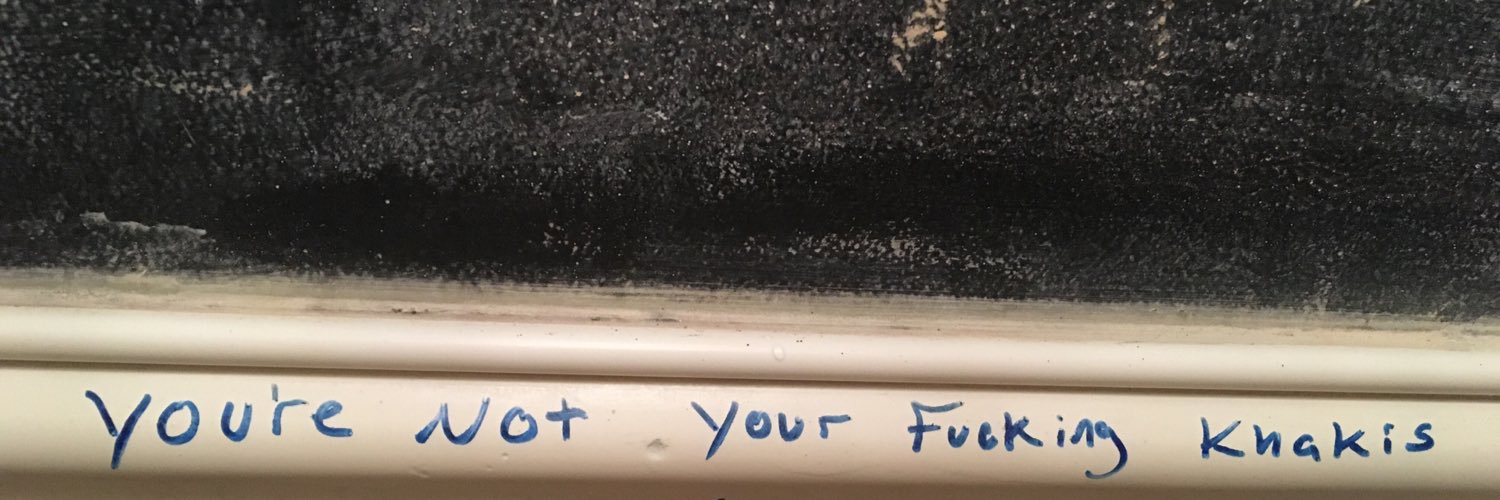 You're Not Your Fucking Khakis